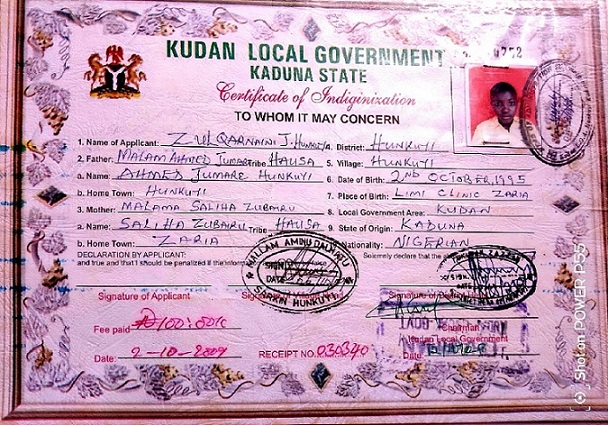 KUDAN LOCAL GOVERNMENT
KADUNA STATE
Certificate of Indiginization
TO WHOM IT MAY CONCERN
1. Name of Applicant: ZULQARNAINI J. HUNKUYI
4. District: HUNKUYI
2. Father: MALAM AHMED JUMARE Tribe HAUSA
5. Village: HUNKUYI
a. Name: AHMED JUMARE HUNKUYI
6. Date of Birth: 2ND OCTOBER, 1995
b. Home Town: HUNKUYI
7. Place of Birth: LIMI CLINIC ZARIA
3. Mother: MALAMA SALIHA ZUBAIRU
8. Local Government Area: KUDAN
a. Name: SALIHA ZUBAIRU Tribe HAUSA
9 State of Origin: KADUNA
b. Home Town: ZARIA
Nationality: NIGERIAN
DECLARATION BY APPLICANT:
Solemnly declare that the
and true and that I should be penalized if the
MALLAM AMINU DALHATU
SIGN
DATE
SARKIN HUNKUYI
Signature of Applicant
Signature of
Fee paid ₦100:00K
Chairman
Kudan Local Government
Date: 2-10-2009
RECEIPT NO. 030340
Date
Shot on POWER P55